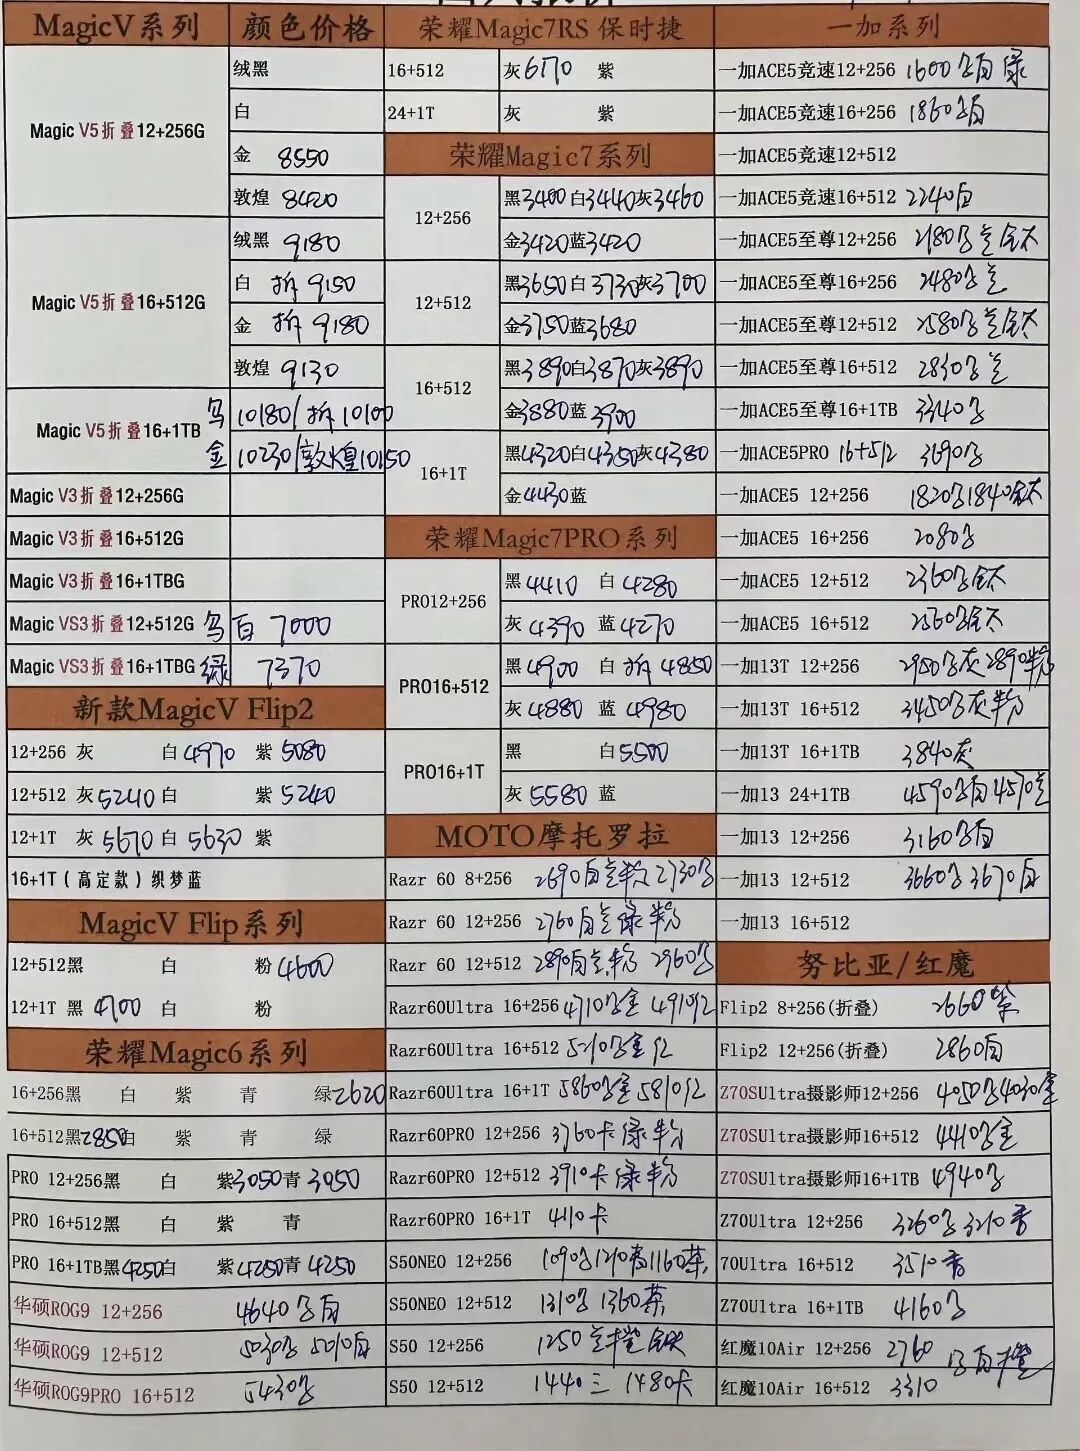 MagicV系列 颜色价格
Magic V5折叠12+256G
绒黑
白
金 8550
敦煌 8420
Magic V5折叠16+512G
绒黑 9180
白 拆 9150
金 拆 9180
敦煌 9130
Magic V5折叠16+1TB
10180/拆10100
金 10230/敦煌10150
Magic V3折叠12+256G
Magic V3折叠16+512G
Magic V3折叠16+1TBG
Magic VS3折叠12+512G 白 7000
Magic VS3折叠16+1TBG 绿 7370
新款MagicV Flip2
12+256 灰 白4970 紫5080
12+512 灰5240白 紫5240
12+1T 灰5670白5630紫
16+1T(高定款)织梦蓝
MagicV Flip系列
12+512黑 白 粉4600
12+1T 黑4700白 粉
荣耀Magic6系列
16+256黑 白 紫 青 绿2620
16+512黑2850白 紫 青 绿
PRO 12+256黑 白 紫3050青3050
PRO 16+512黑 白 紫 青
PRO 16+1TB黑4250白 紫4250青4250
华硕ROG9 12+256 4640 白
华硕ROG9 12+512 5030 5010白
华硕ROG9PRO 16+512 5430
荣耀Magic7RS 保时捷
16+512 灰6170 紫
24+1T 灰 紫
荣耀Magic7系列
12+256
黑3400白3440灰3460
金3420蓝3420
12+512
黑3650白3730灰3700
金3750蓝3680
16+512
黑3890白3870灰3890
金3880蓝3900
16+1T
黑4320白4350灰4380
金4430蓝
荣耀Magic7PRO系列
PRO12+256
黑4410 白4280
灰4390 蓝4270
PRO16+512
黑4900 白拆4850
灰4880 蓝4980
PRO16+1T
黑 白5500
灰5580 蓝
MOTO摩托罗拉
Razr 60 8+256 2690白 粉 2730
Razr 60 12+256 2760白 绿粉
Razr 60 12+512 2890白 粉 2960
Razr60Ultra 16+256 4710 金 4910红
Razr60Ultra 16+512 5210 金 红
Razr60Ultra 16+1T 5860 金 5810红
Razr60PRO 12+256 3760卡绿粉
Razr60PRO 12+512 3910卡绿粉
Razr60PRO 16+1T 4110卡
S50NEO 12+256 1090 1210青1160茶
S50NEO 12+512 1310 1360茶
S50 12+256 1250
S50 12+512 1440 1480卡
一加系列
一加ACE5竞速12+256 1600 白绿
一加ACE5竞速16+256 1860 白
一加ACE5竞速12+512
一加ACE5竞速16+512 2240白
一加ACE5至尊12+256 2180 钛
一加ACE5至尊16+256 2480
一加ACE5至尊12+512 2580 钛
一加ACE5至尊16+512 2830
一加ACE5至尊16+1TB 3340
一加ACE5PRO 16+512 3690
一加ACE5 12+256 1820 1840钛
一加ACE5 16+256 2080
一加ACE5 12+512 2360 钛
一加ACE5 16+512 2560 钛
一加13T 12+256 2950 灰2890粉
一加13T 16+512 3450 灰粉
一加13T 16+1TB 3840灰
一加13 24+1TB 4590 白4570
一加13 12+256 3160 白
一加13 12+512 3660 3670白
一加13 16+512
努比亚/红魔
Flip2 8+256(折叠) 2660紫
Flip2 12+256(折叠) 2860白
Z70SUltra摄影师12+256 4050 4030金
Z70SUltra摄影师16+512 4410 金
Z70SUltra摄影师16+1TB 4940
Z70Ultra 12+256 3260 3210香
70Ultra 16+512 3510香
Z70Ultra 16+1TB 4160
红魔10Air 12+256 2760 白橙
红魔10Air 16+512 3310